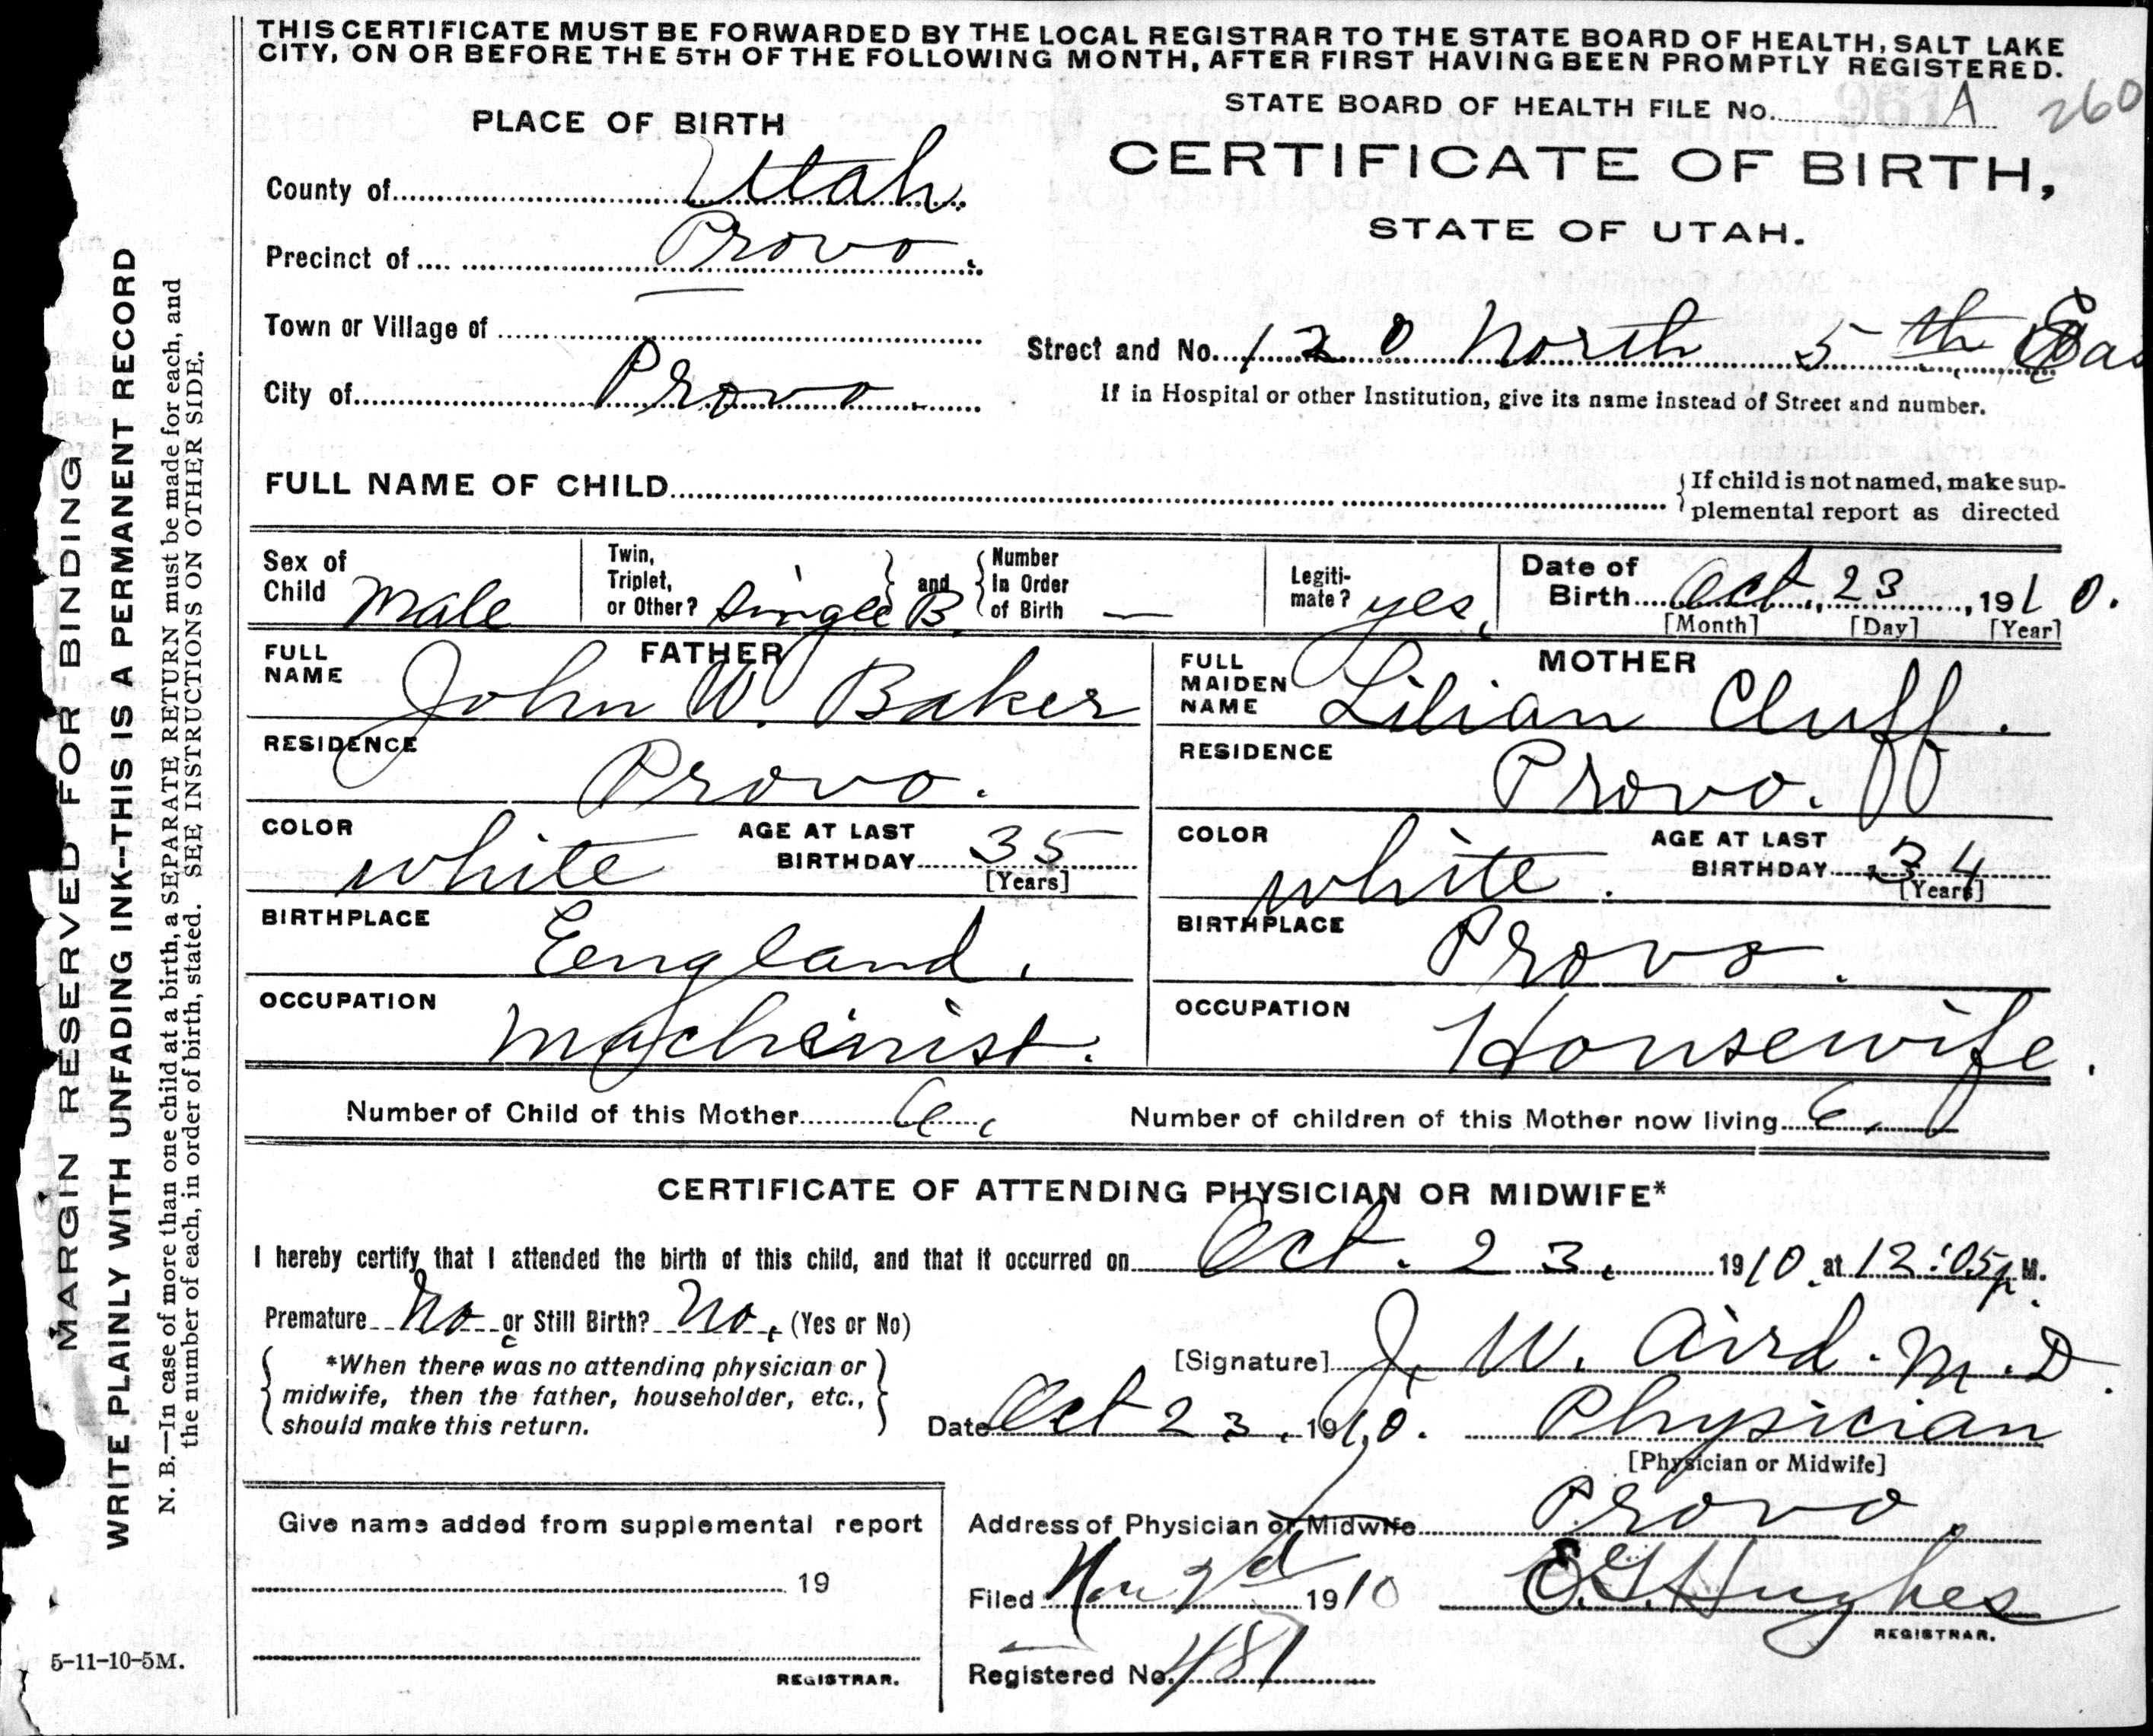 THIS CERTIFICATE MUST BE FORWARDED BY THE LOCAL REGISTRAR TO THE STATE BOARD OF HEALTH, SALT LAKE
CITY, ON OR BEFORE THE 5TH OF THE FOLLOWING MONTH, AFTER FIRST HAVING BEEN PROMPTLY REGISTERED.
STATE BOARD OF HEALTH FILE No. A 260
PLACE OF BIRTH
CERTIFICATE OF BIRTH,
STATE OF UTAH.
County of Utah
Precinct of Provo.
Town or Village of
Street and No. 120 North 5th Eas
City of Provo.
If in Hospital or other Institution, give its name instead of Street and number.
FULL NAME OF CHILD {If child is not named, make sup-
plemental report as directed
Sex of Child Male
Twin, Triplet, or Other? Single B. and {Number in Order of Birth —
Legiti-mate? yes.
Date of Birth Oct. 23, 1910.
[Month] [Day] [Year]
FATHER
FULL NAME John W. Baker
RESIDENCE Provo.
COLOR white AGE AT LAST BIRTHDAY 35
[Years]
BIRTHPLACE England.
OCCUPATION Machinist.
MOTHER
FULL MAIDEN NAME Lilian Cluff.
RESIDENCE Provo.
COLOR white. AGE AT LAST BIRTHDAY 34
[Years]
BIRTHPLACE Provo.
OCCUPATION Housewife.
Number of Child of this Mother 6. Number of children of this Mother now living 6.
CERTIFICATE OF ATTENDING PHYSICIAN OR MIDWIFE*
I hereby certify that I attended the birth of this child, and that it occurred on Oct. 23, 1910. at 12:05 p. M.
Premature No or Still Birth? No. (Yes or No)
{*When there was no attending physician or
midwife, then the father, householder, etc.,
should make this return.}
[Signature] J. W. Aird. M.D.
Date Oct 23. 1910. Physician
[Physician or Midwife]
Address of Physician or Midwife Provo.
Filed Nov 1910 E.G. Hughes
REGISTRAR.
Registered No. 481
Give name added from supplemental report
19
REGISTRAR.
MARGIN RESERVED FOR BINDING
WRITE PLAINLY WITH UNFADING INK--THIS IS A PERMANENT RECORD
N. B.—In case of more than one child at a birth, a SEPARATE RETURN must be made for each, and
the number of each, in order of birth, stated. SEE INSTRUCTIONS ON OTHER SIDE.
5-11-10-5M.